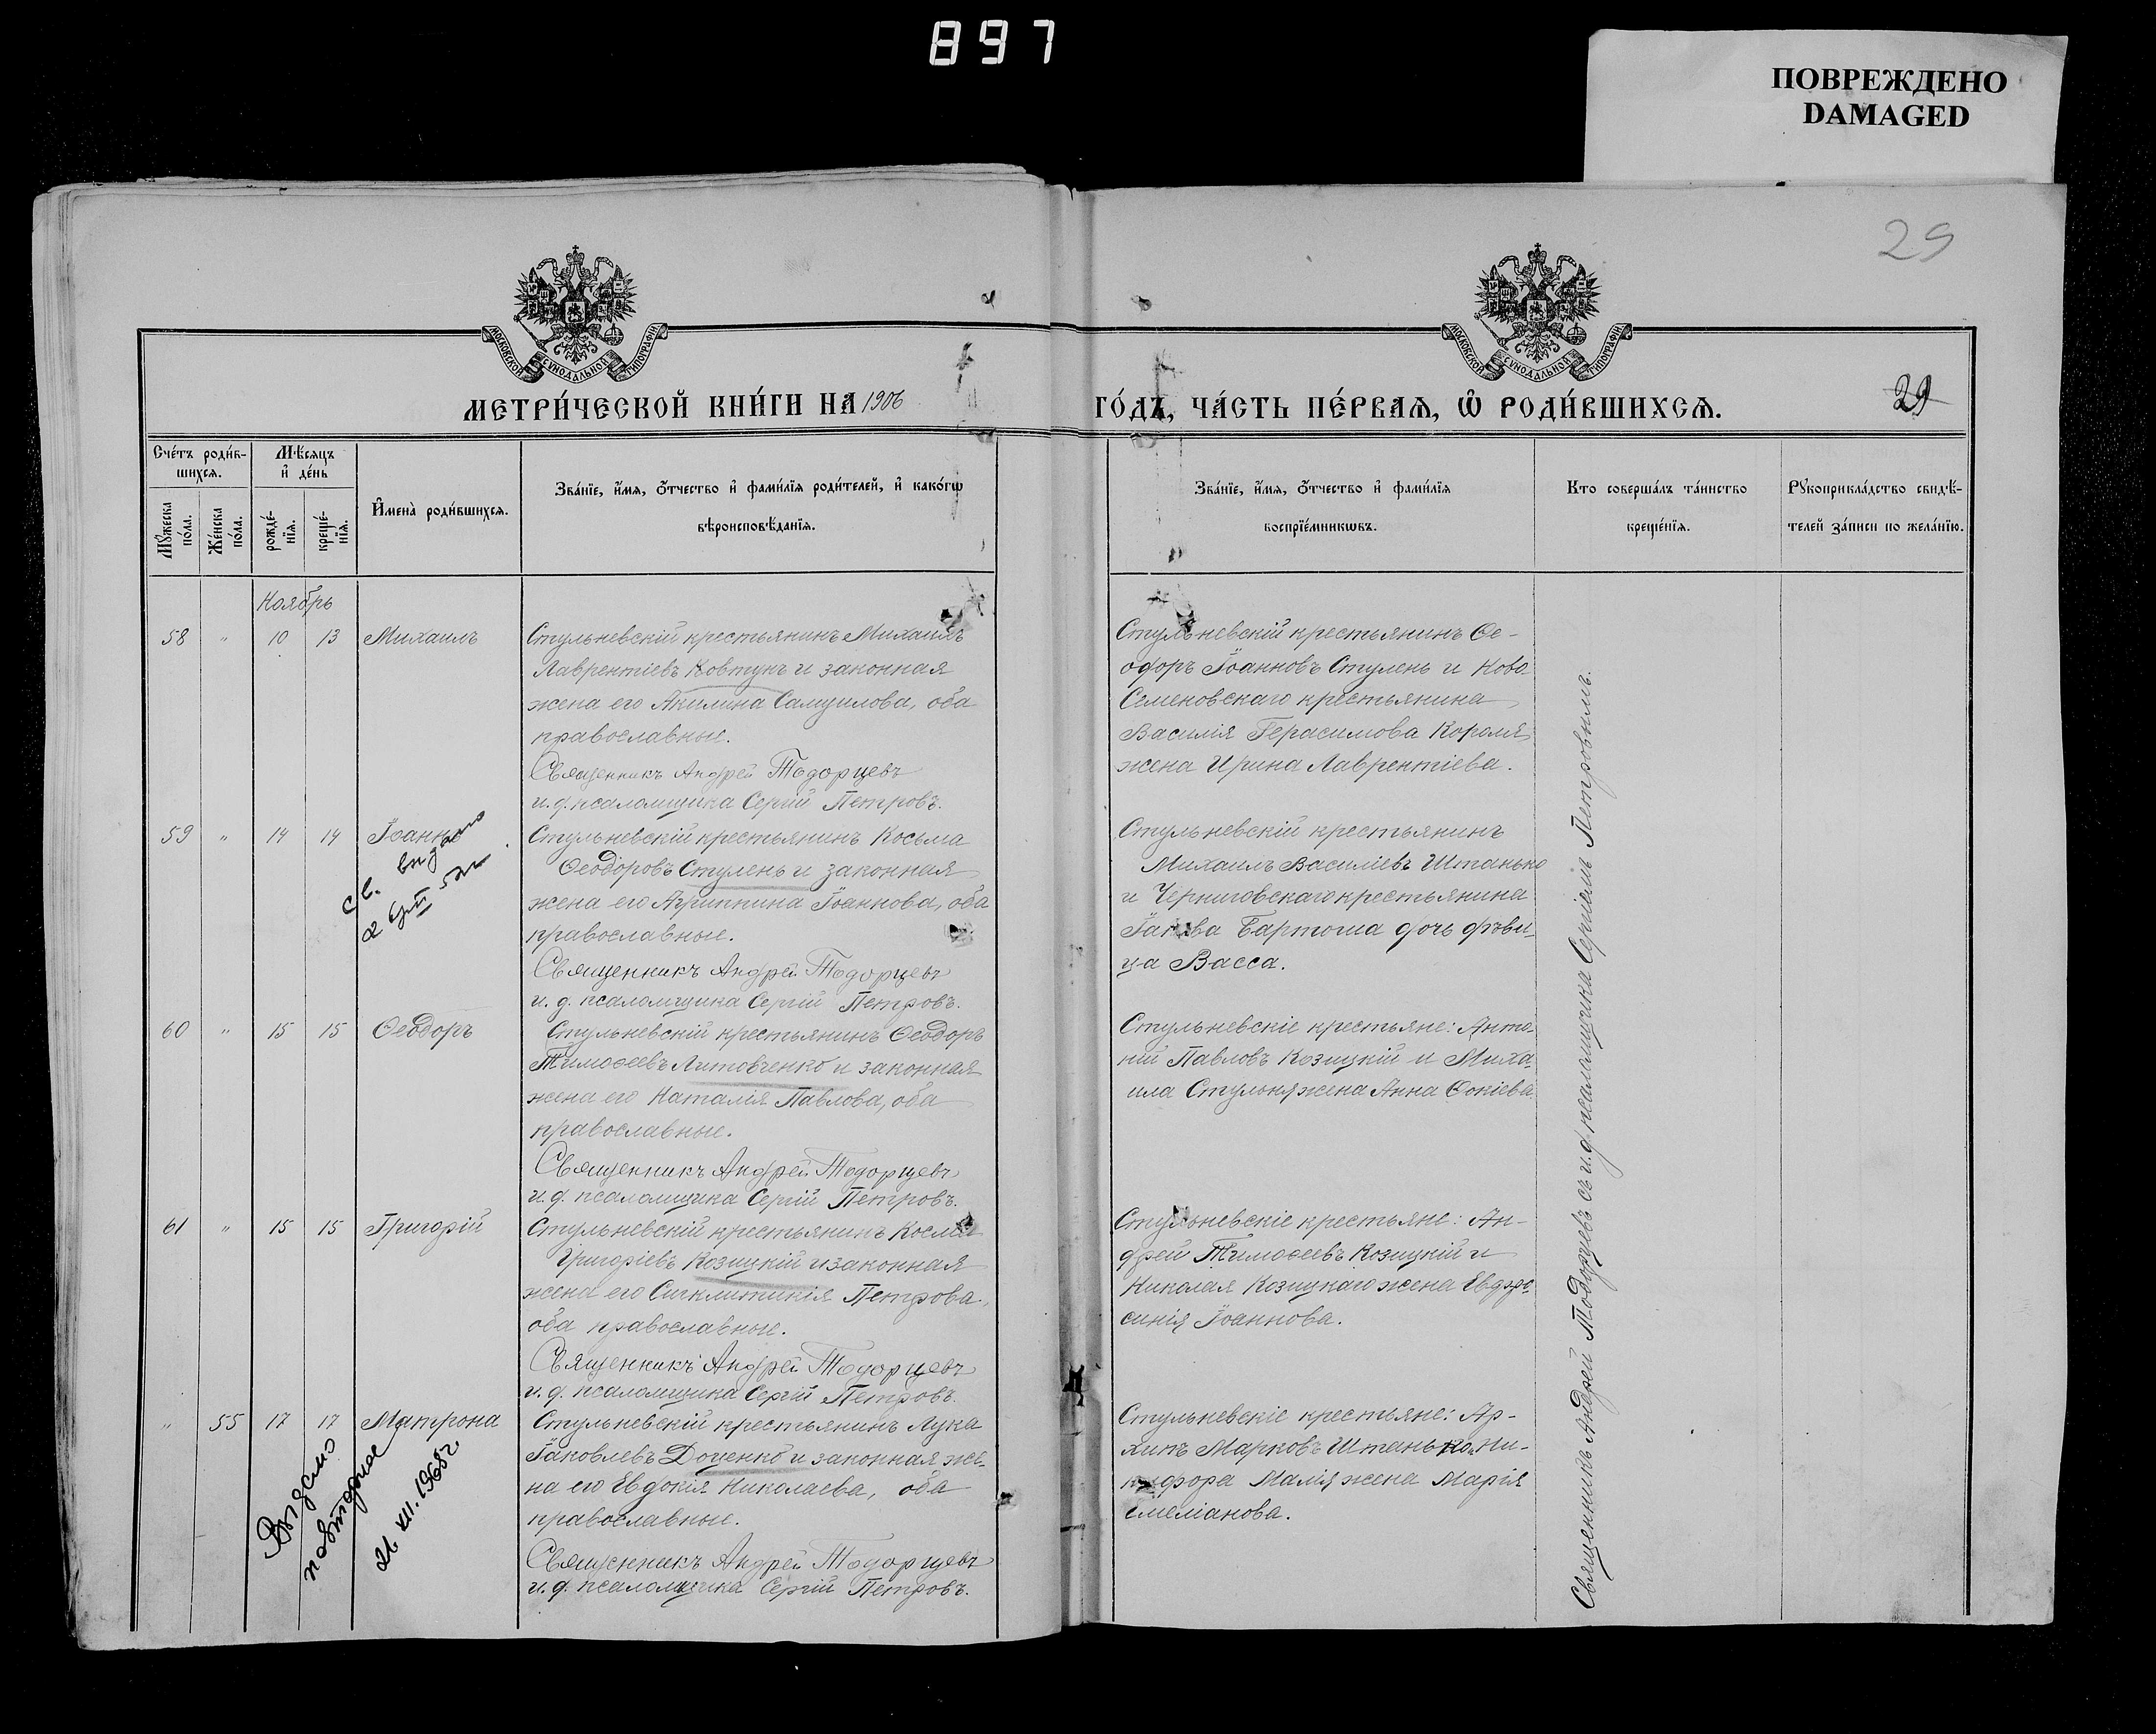 897
ПОВРЕЖДЕНО
DAMAGED
29
МОСКОВСКОЙ СѴНОДАЛЬНОЙ ТИПОГРАФІИ
МОСКОВСКОЙ СѴНОДАЛЬНОЙ ТИПОГРАФІИ
МЕТРИ́ЧЕСКОЙ КНИ́ГИ НА 1906
ГО́ДЪ, ЧА́СТЬ ПЕ́РВАѦ, Ѽ РОДИ́ВШИХСѦ.
29
Сче́тъ роди́в-
шихсѧ.
Мꙋ́жеска
по́ла.
Же́нска
по́ла.
Мѣ́сѧцъ
и҆ де́нь
рожде́-
нїѧ.
креще́-
нїѧ.
И҆мена̀ роди́вшихсѧ.
Зва́нїе, и҆́мѧ, ѻ҆́тчество и҆ фами́лїѧ роди́телей, и҆ како́гѡ
вѣроисповѣ́данїѧ.
Зва́нїе, и҆́мѧ, ѻ҆́тчество и҆ фами́лїѧ
воспрїе́мникѡвъ.
Кто соверша́лъ та́инство
креще́нїѧ.
Рꙋкоприкла́дство свидѣ́-
телей за́писи по жела́нїю.
Ноябрь
58 " 10 13 Михаилъ
Стульневскій крестьянинъ Михаилъ
Лаврентіевъ Ковтунъ и законная
жена его Акилина Самуилова, оба
православные.
Священникъ Андрей Тодорцевъ
и. д. псаломщика Сергій Петровъ.
Стульневскій крестьянинъ Ѳе-
одоръ Іоанновъ Стулень и Ново-
Семеновскаго крестьянина
Василія Герасимова Короля
жена Ирина Лаврентіева.
59 " 14 14 Іоаннъ
Стульневскій крестьянинъ Косьма
Ѳеодоровъ Стулень и законная
жена его Агриппина Іоаннова, оба
православные.
Священникъ Андрей Тодорцевъ
и. д. псаломщика Сергій Петровъ.
Стульневскій крестьянинъ
Михаилъ Василіевъ Штанько
и Черниговскаго крестьянина
Іакова Бартоша дочь дѣви-
ца Васса.
60 " 15 15 Ѳеодоръ
Стульневскій крестьянинъ Ѳеодоръ
Тимоѳеевъ Литовченко и законная
жена его Наталія Павлова, оба
православные.
Священникъ Андрей Тодорцевъ
и. д. псаломщика Сергій Петровъ.
Стульневскіе крестьяне: Анто-
ній Павловъ Козицкій и Миха-
ила Стульня жена Анна Ѳокіева
61 " 15 15 Григорій
Стульневскій крестьянинъ Косма
Григоріевъ Козицкій и законная
жена его Сигклитикія Петрова,
оба православные.
Священникъ Андрей Тодорцевъ
и. д. псаломщика Сергій Петровъ.
Стульневскіе крестьяне: Ан-
дрей Тимоѳеевъ Козицкій и
Николая Козицкаго жена Евдро-
синія Іоаннова.
" 55 17 17 Матрона
Выдано
повторное
26.XII.1968г.
Стульневскій крестьянинъ Лука
Іаковлевъ Доценко и законная же-
на его Евдокія Николаева, оба
православные.
Священникъ Андрей Тодорцевъ
и. д. псаломщика Сергій Петровъ.
Стульневскіе крестьяне: Ар-
хипъ Марковъ Штанько и Ни-
кифора Малія жена Марія
Емеліанова.
Священникъ Андрей Тодорцевъ съ и. д. псаломщика Сергіемъ Петровымъ.